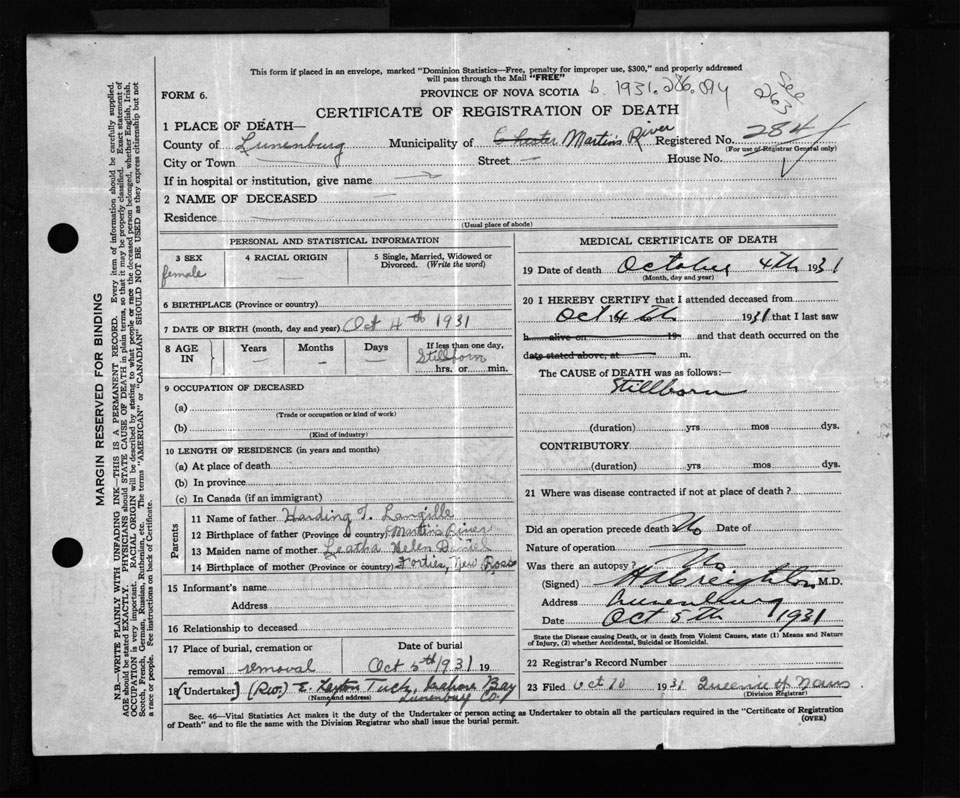 This form if placed in an envelope, marked "Dominion Statistics—Free, penalty for improper use, $300," and properly addressed
will pass through the Mail "FREE"
FORM 6.
PROVINCE OF NOVA SCOTIA b. 1931.286.094
See 263
CERTIFICATE OF REGISTRATION OF DEATH
1 PLACE OF DEATH—
County of Lunenburg Municipality of Chester Martin's River Registered No. 284
(For use of Registrar General only)
City or Town Street House No.
If in hospital or institution, give name
2 NAME OF DECEASED
Residence
(Usual place of abode)
PERSONAL AND STATISTICAL INFORMATION
3 SEX 4 RACIAL ORIGIN 5 Single, Married, Widowed or Divorced. (Write the word)
female
6 BIRTHPLACE (Province or country)
7 DATE OF BIRTH (month, day and year) Oct 4th 1931
8 AGE IN Years Months Days If less than one day,
Stillborn
hrs. or min.
9 OCCUPATION OF DECEASED
(a)
(Trade or occupation or kind of work)
(b)
(Kind of industry)
10 LENGTH OF RESIDENCE (in years and months)
(a) At place of death
(b) In province
(c) In Canada (if an immigrant)
Parents
11 Name of father Harding T. Langille
12 Birthplace of father (Province or country) Martin's River
13 Maiden name of mother Leatha Helen Daniel
14 Birthplace of mother (Province or country) Forties, New Ross
15 Informant's name
Address
16 Relationship to deceased
17 Place of burial, cremation or Date of burial
removal removal Oct 5th 1931 19
18 (Undertaker) (Rev.) E. Layton Tuck, Mahone Bay
(Name and address) Lunenburg Co.
MEDICAL CERTIFICATE OF DEATH
19 Date of death October 4th 1931
(Month, day and year)
20 I HEREBY CERTIFY that I attended deceased from
Oct 4 to 1931 that I last saw
h alive on 19 and that death occurred on the
date stated above, at m.
The CAUSE of DEATH was as follows:—
Stillborn
(duration) yrs mos dys.
CONTRIBUTORY
(duration) yrs mos dys.
21 Where was disease contracted if not at place of death ?
Did an operation precede death No Date of
Nature of operation
Was there an autopsy? No
(Signed) H A Creighton M.D.
Address Lunenburg
Date Oct 5th 1931
State the Disease causing Death, or in death from Violent Causes, state (1) Means and Nature
of Injury, (2) whether Accidental, Suicidal or Homicidal.
22 Registrar's Record Number
23 Filed Oct 10 1931 Queenie H
(Division Registrar)
Sec. 46—Vital Statistics Act makes it the duty of the Undertaker or person acting as Undertaker to obtain all the particulars required in the "Certificate of Registration
of Death" and to file the same with the Division Registrar who shall issue the burial permit. (OVER)
MARGIN RESERVED FOR BINDING
N.B.—WRITE PLAINLY WITH UNFADING INK—THIS IS A PERMANENT RECORD. Every item of information should be carefully supplied.
AGE should be stated EXACTLY. PHYSICIANS should STATE CAUSE OF DEATH in plain terms, so that it may be properly classified. Exact statement of
OCCUPATION is very important. RACIAL ORIGIN will be described by stating to what people or race the deceased person belonged, whether English, Irish,
Scotch, French, German, Russian, Ruthenian, etc. The terms "AMERICAN" or "CANADIAN" SHOULD NOT BE USED as they express citizenship but not
a race or people. See instructions on back of Certificate.